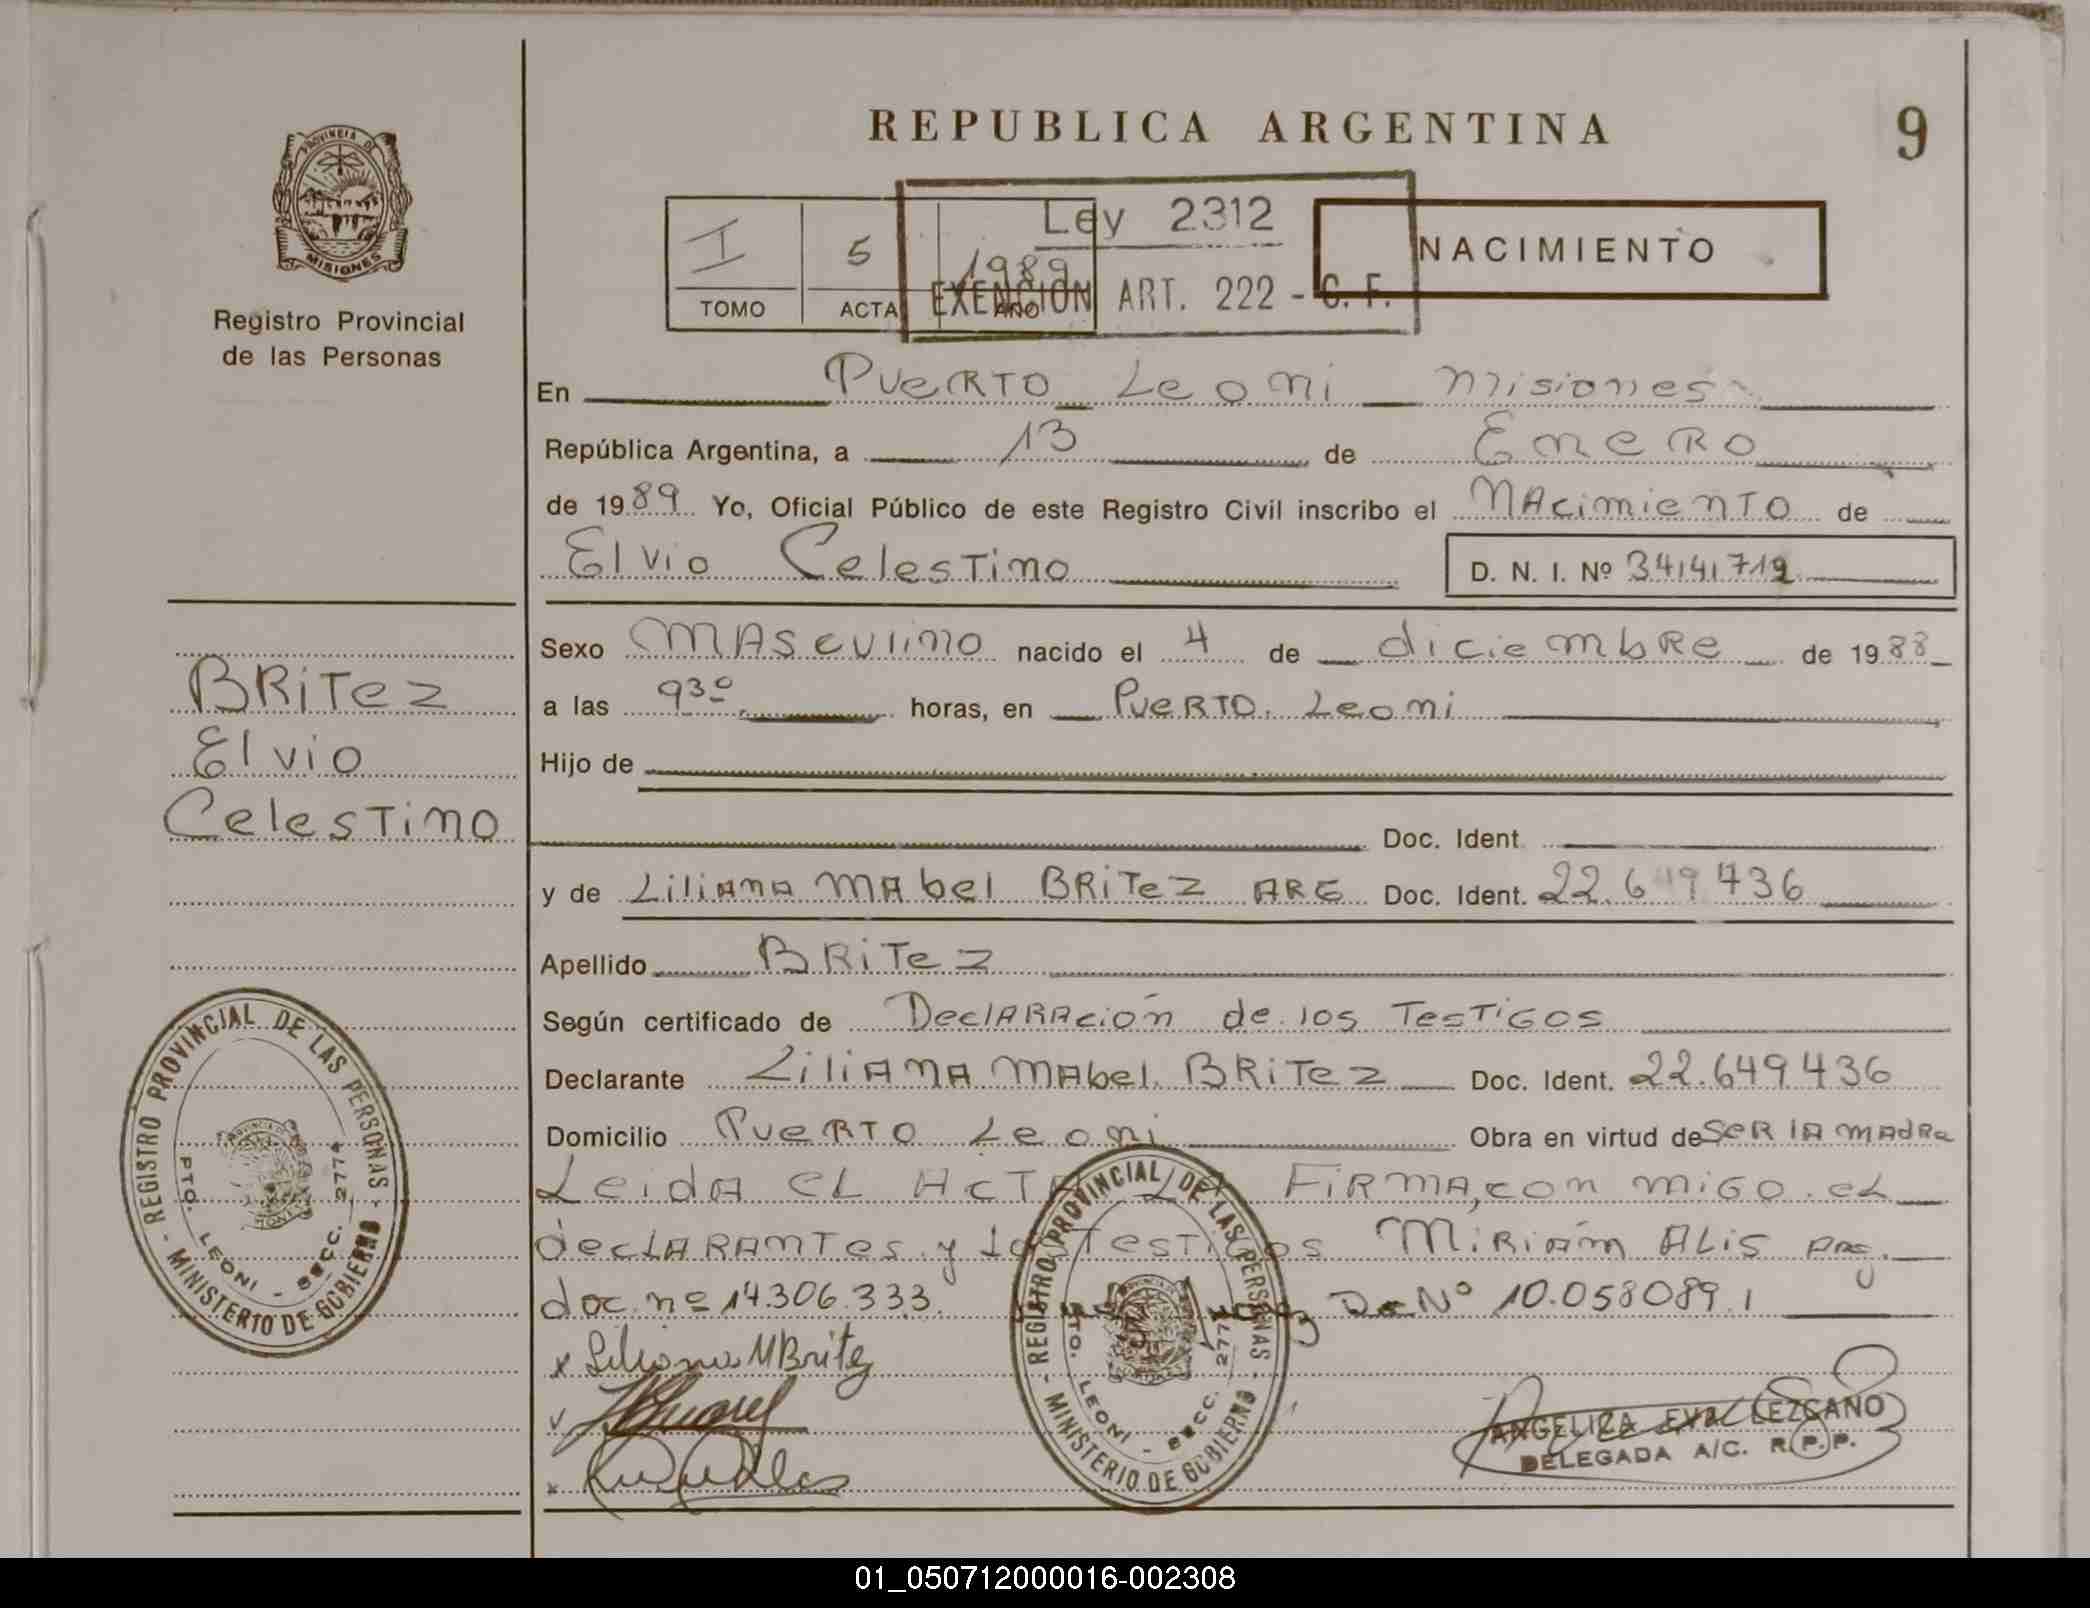 REPUBLICA ARGENTINA
9
PROVINCIA DE
MISIONES
Registro Provincial
de las Personas
I 5 1989
TOMO ACTA AÑO
Ley 2312
EXENCION ART. 222 - C. F.
NACIMIENTO
En Puerto Leoni Misiones
República Argentina, a 13 de Enero
de 1989 Yo, Oficial Público de este Registro Civil inscribo el NAcimiento de
Elvio Celestino
D. N. I. Nº 34.141.719
Sexo MAsculino nacido el 4 de diciembre de 1988
a las 930 horas, en Puerto Leoni
Hijo de
Doc. Ident.
y de Liliana Mabel Britez ARG Doc. Ident. 22.649.436
Apellido Britez
Según certificado de Declaración de los Testigos
Declarante Liliana Mabel Britez Doc. Ident. 22.649436
Domicilio Puerto Leoni Obra en virtud de ser la madre
Leida el Acta La Firma, con migo el
declarantes y los Testigos Miriam Alis
doc. nº 14.306.333. Nº 10.058089
x Liliana M Britez
ANGELICA EVA LEZCANO
DELEGADA A/C. R.P.P.
BRiTez
Elvio
Celestino
REGISTRO PROVINCIAL DE LAS PERSONAS - MINISTERIO DE GOBIERNO
PTO. LEONI - SECC. 2774
REGISTRO PROVINCIAL DE LAS PERSONAS - MINISTERIO DE GOBIERNO
PTO. LEONI - SECC. 277
01_050712000016-002308